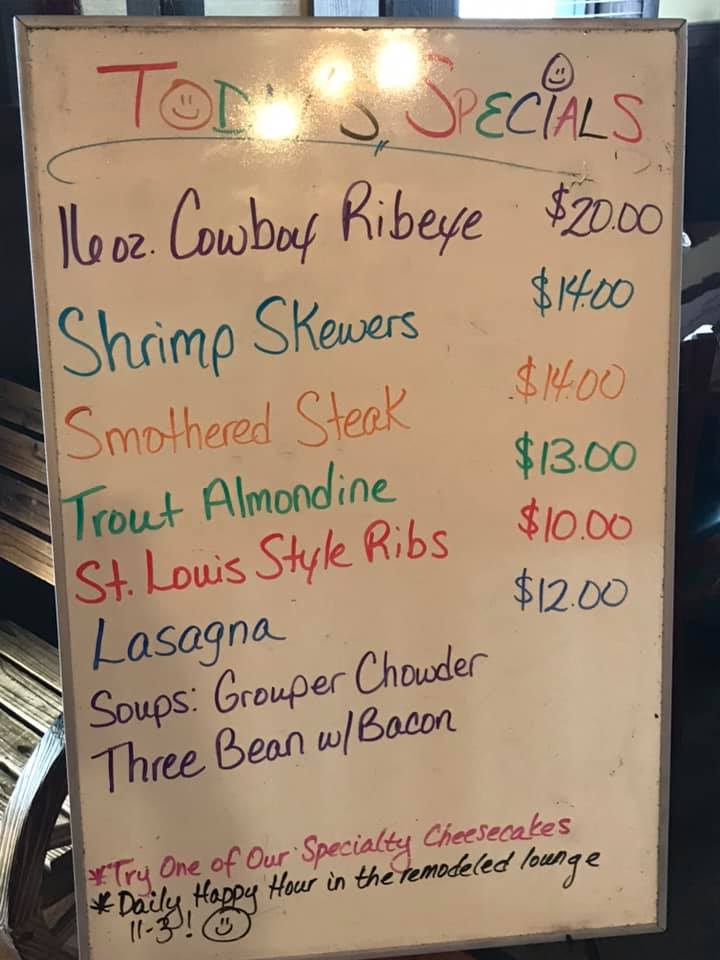 TODAY'S SPECIALS
16 oz. Cowboy Ribeye $20.00
Shrimp Skewers $14.00
Smothered Steak $14.00
Trout Almondine $13.00
St. Louis Style Ribs $10.00
Lasagna $12.00
Soups: Grouper Chowder
Three Bean w/Bacon
*Try One of Our Specialty Cheesecakes
*Daily Happy Hour in the remodeled lounge
11-3!